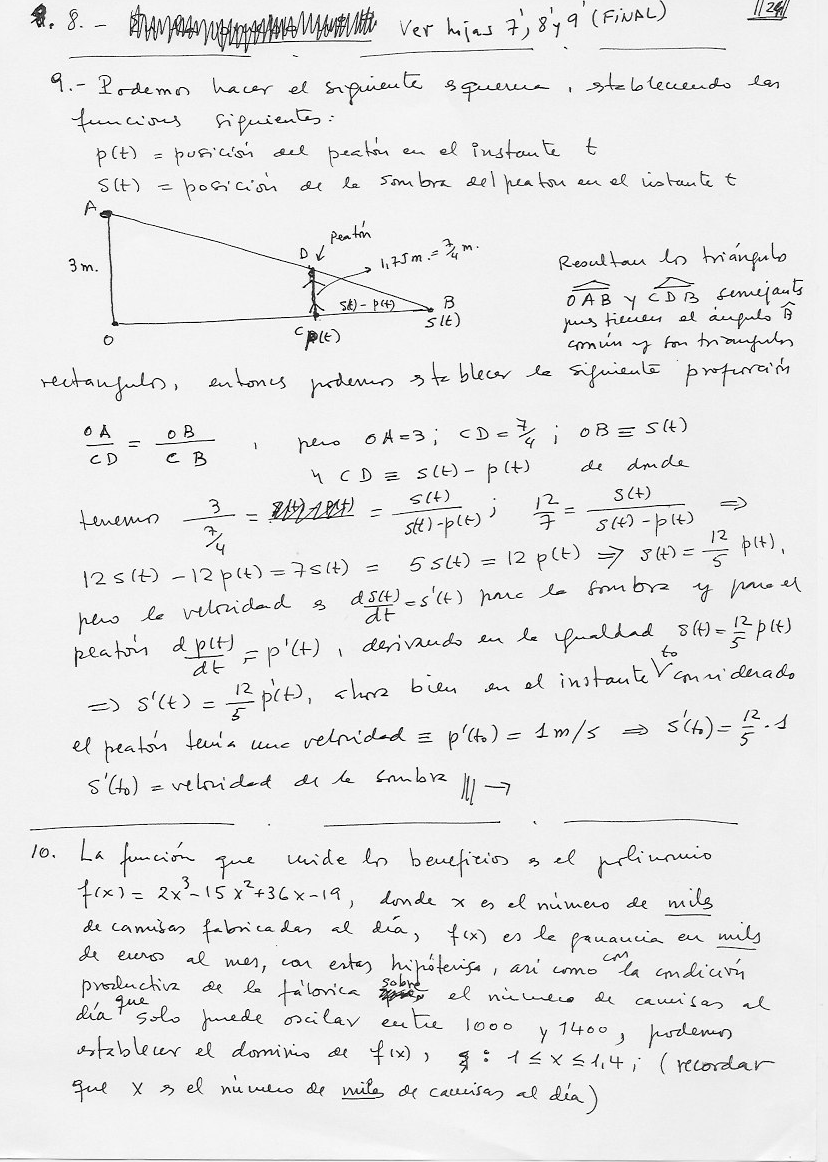 8. - Ver hojas 7', 8' y 9' (FINAL)
9.- Podemos hacer el siguiente esquema, estableciendo las
funciones siguientes:
p(t) = posición del peatón en el instante t
s(t) = posición de la sombra del peaton en el instante t
A
3 m.
O
D
Peatón
1,75 m. = 7/4 m.
s(t) - p(t)
C p(t)
B
s(t)
Resultan los triángulo
OAB y CDB semejantes
pues tienen el ángulo B̂
común y son triangulos
rectangulos, entonces podemos establecer la siguiente proporción
OA/CD = OB/CB , pero OA=3; CD=7/4; OB ≡ s(t)
y CD ≡ s(t) - p(t) de donde
tenemos 3/(7/4) = = s(t)/(s(t)-p(t)); 12/7 = s(t)/(s(t)-p(t)) ⇒
12s(t) - 12p(t) = 7s(t) = 5s(t) = 12p(t) ⇒ s(t) = 12/5 p(t),
pero la velocidad es ds(t)/dt = s'(t) para la sombra y para el
peatón dp(t)/dt = p'(t), derivando en la igualdad s(t) = 12/5 p(t)
⇒ s'(t) = 12/5 p'(t), ahora bien en el instante t₀ considerado
el peatón tenía una velocidad ≡ p'(t₀) = 1 m/s ⇒ s'(t₀) = 12/5 · 1
s'(t₀) = velocidad de la sombra ||| →
10. La función que mide los beneficios es el polinomio
f(x) = 2x³ - 15x² + 36x - 19, donde x es el número de miles
de camisas fabricadas al día, f(x) es la ganancia en miles
de euros al mes, con estas hipótesis, así como con la condición
productiva de la fábrica sobre el número de camisas al
día que solo puede oscilar entre 1000 y 1400, podemos
establecer el dominio de f(x), : 1 ≤ x ≤ 1,4; (recordar
que x es el número de miles de camisas al día)